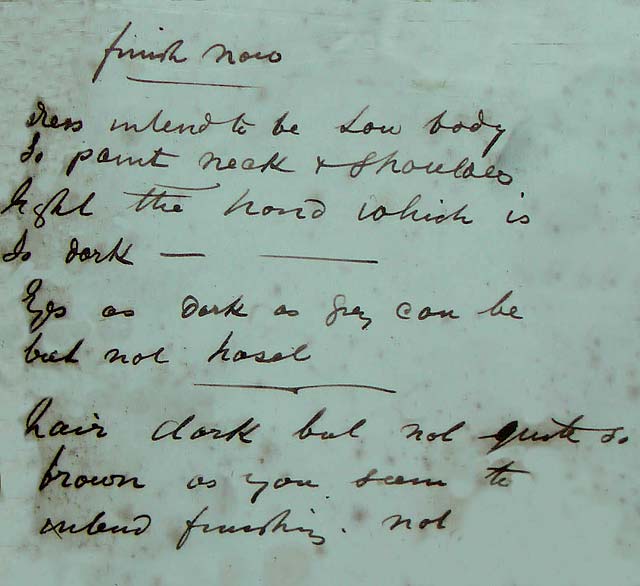 finish now
dress intend to be Low body
So paint neck & Shoulders
light the hand which is
So dark —
Eyes as dark as grey can be
but not hasel
hair dark but not quite so
brown as you seem to
intend finishing. not